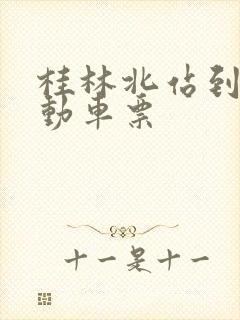 桂林北佔到
動車票
十一是十一